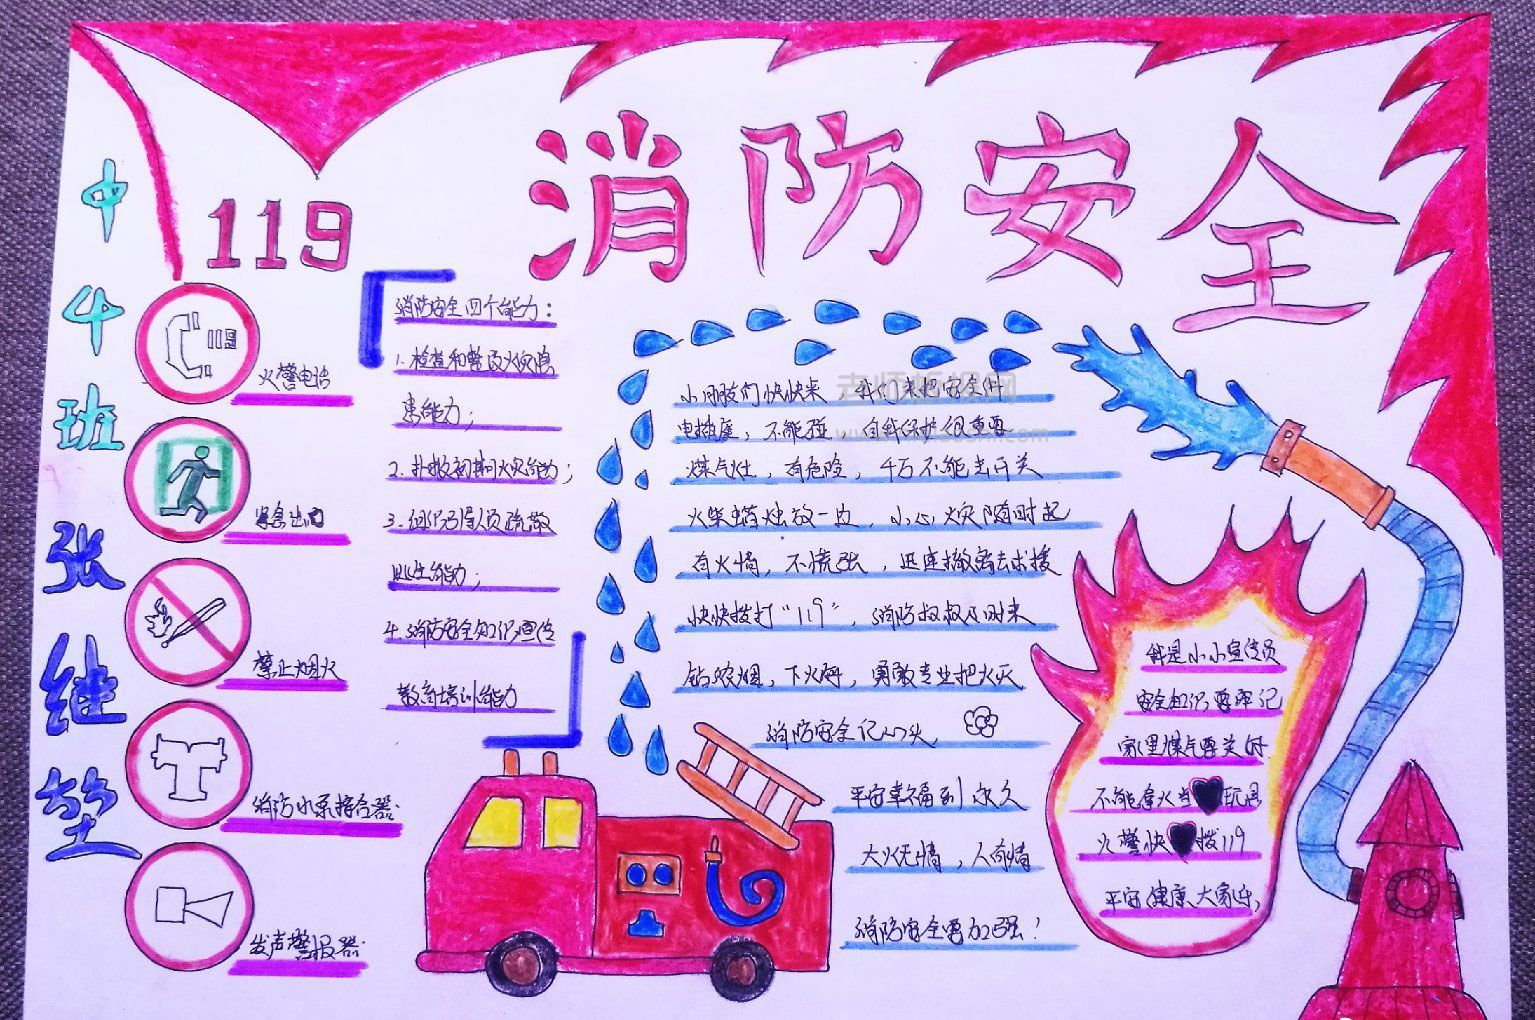 消防安全
119
中4班
张继堃
火警电话
紧急出口
禁止烟火
消防水泵接合器
发声警报器
消防安全四个能力：
1.检查和整改火灾隐
患能力；
2.扑救初期火灾能力；
3.组织引导人员疏散
逃生能力；
4.消防安全知识宣传
教育培训能力
小朋友们快快来 我们来把安全
电插座，不能碰 自我保护很重要
煤气灶，有危险，千万不能去开关
火柴蜡烛放一边，小心火灾随时起
有火情，不慌张，迅速撤离去求援
快快拨打“119”，消防叔叔及时来
钻浓烟，下火海，勇敢专业把火灭
消防安全记心头
平安幸福到永久
大火无情，人有情
消防安全要加强！
我是小小宣传员
安全知识要牢记
家里煤气要关好
不能拿火当玩具
火警快拨119
平安健康大家乐
119
老师板报网